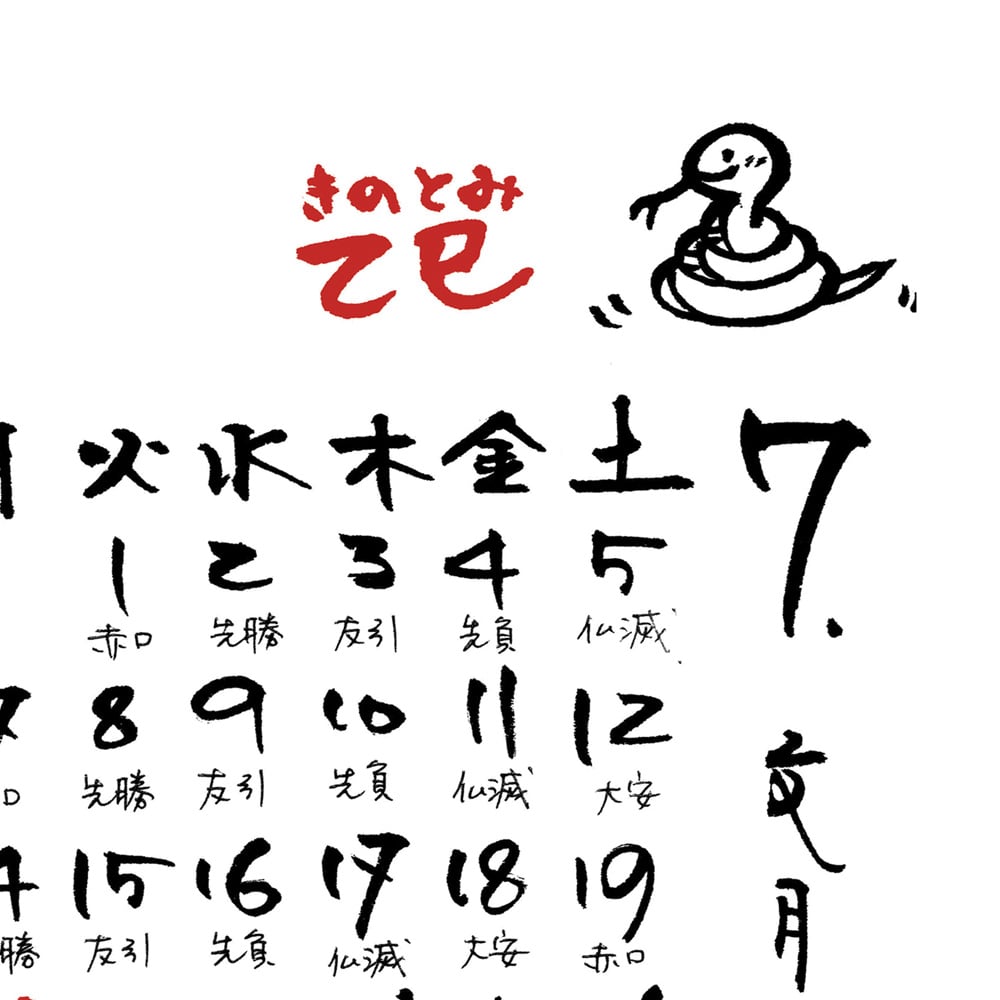 きのとみ
乙巳
火 水 木 金 土
1 2 3 4 5
赤口 先勝 友引 先負 仏滅
7 8 9 10 11 12
口 先勝 友引 先負 仏滅 大安
15 16 17 18 19
勝 友引 先負 仏滅 大安 赤口
7.
文月